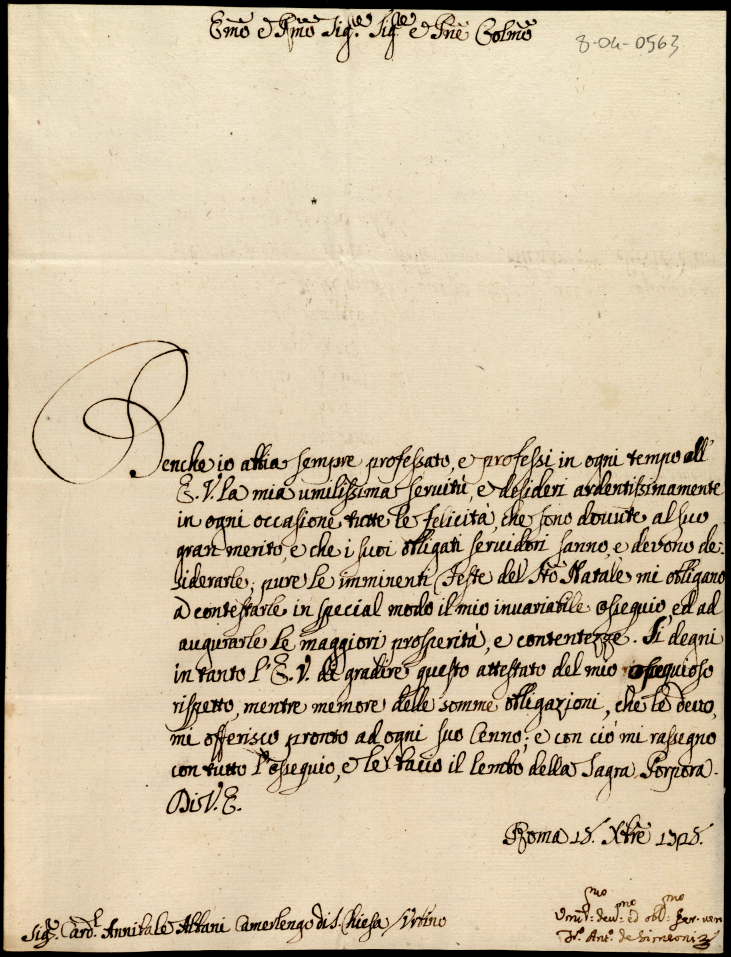 Emo e Rmo Sigre Sigre e Pne Colmo
8-04-0563
Benche io abbia sempre professato, e professi in ogni tempo all'
E.V. la mia umilissima servitù, e desideri ardentissimamente
in ogni occasione tutte le felicità, che sono dovute al suo
gran merito, e che i suoi obligati servidori sanno, e devono de-
siderarle; pure le imminenti Feste del Sto Natale mi obligano
à contestarle in special modo il mio invariabile ossequio, ed ad
augurarle le maggiori prosperità, e contentezze. Si degni
in tanto l'E.V. di gradire questo attestato del mio ossequioso
rispetto, mentre memore delle somme obligazioni, che le devo,
mi offerisco pronto ad ogni suo Cenno; e con ciò mi rassegno
con tutto l'ossequio, e le bacio il lembo della Sagra Porpora.
Di V.E.
Roma 15. Xbre
Sigr Cardl Annibale Albani Camerlengo di S. Chiesa / Urbino
Umilmo devmo ed oblmo ser. ven
Ant.o de Simeoni